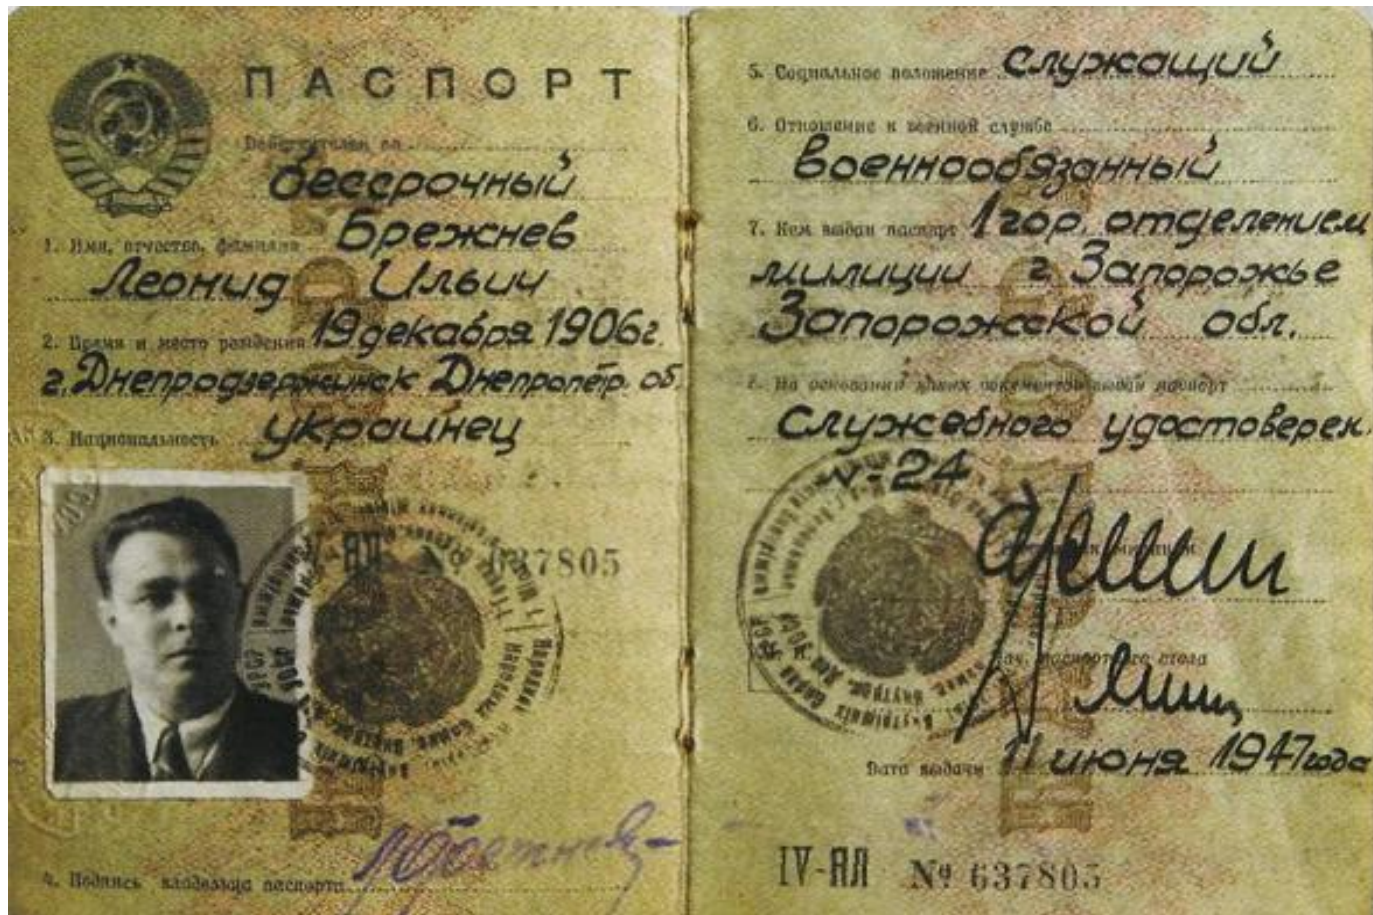 ПАСПОРТ
Действителен на
бессрочный
1. Имя, отчество, фамилия Брежнев
Леонид Ильич
2. Время и место рождения 19 декабря 1906г.
г. Днепродзержинск Днепропетр. об.
3. Национальность украинец
IV-ЯЛ № 637805
4. Подпись владельца паспорта
5. Социальное положение служащий
6. Отношение к военной службе
военнообязанный
7. Кем выдан паспорт 1 гор. отделением
милиции г. Запорожье
Запорожской обл.
8. На основании каких документов выдан паспорт
Служебного удостоверен.
v-24
Нач. паспортного стола
Дата выдачи 11 июня 1947 года
IV-ЯЛ № 637805